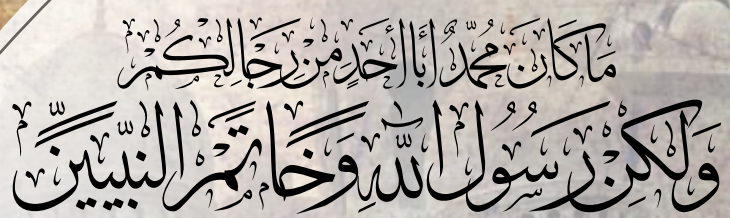 مَا كَانَ مُحَمَّدٌ أَبَا أَحَدٍ مِنْ رِجَالِكُمْ
وَلَكِنْ رَسُولَ اللَّهِ وَخَاتَمَ النَّبِيِّينَ